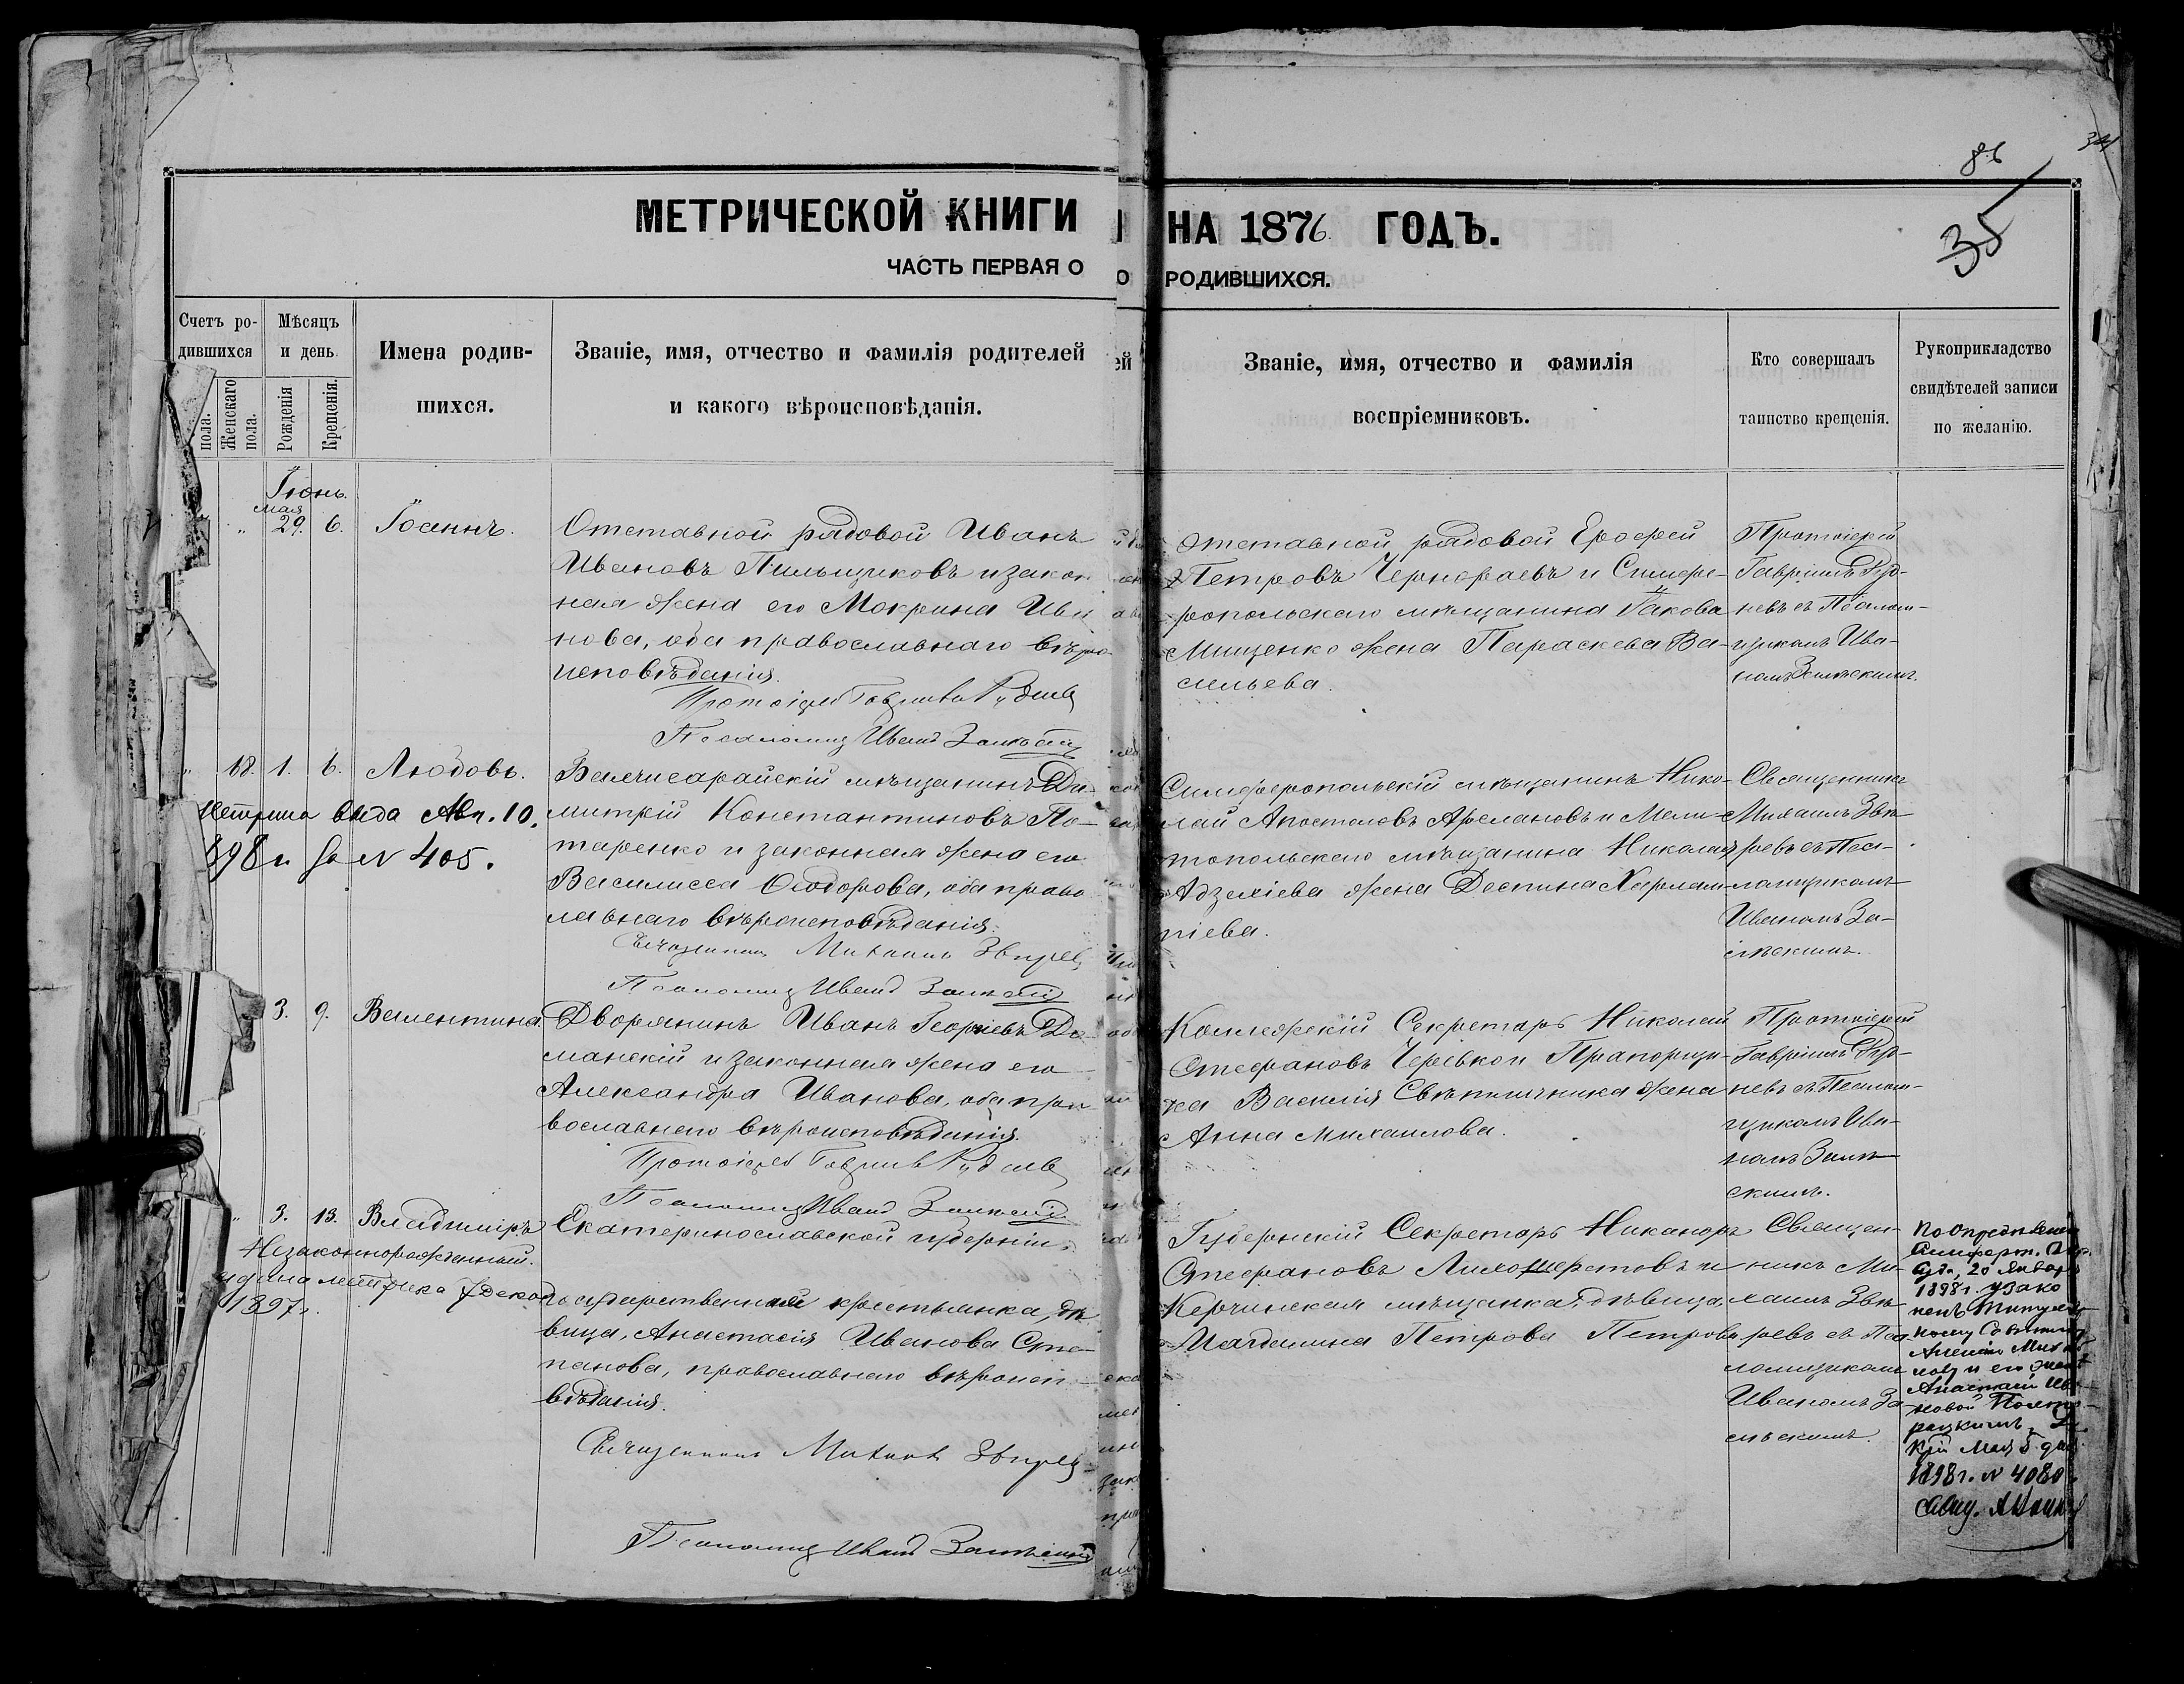 86
34
35
МЕТРИЧЕСКОЙ КНИГИ НА 1876 ГОДЪ.
ЧАСТЬ ПЕРВАЯ О РОДИВШИХСЯ.
Счетъ ро-
дившихся
пола.
Женскаго
пола.
Мѣсяцъ
и день.
Рожденія
Крещенія.
Имена родив-
шихся.
Званіе, имя, отчество и фамилія родителей
и какого вѣроисповѣданія.
Званіе, имя, отчество и фамилія
воспріемниковъ.
Кто совершалъ
таинство крещенія.
Рукоприкладство
свидѣтелей записи
по желанію.
Іюнь.
мая
29. 6.
Іоаннъ.
Отставной рядовой Иванъ
Ивановъ Пильщиковъ и закон
ная жена его Мокрина Ива
нова, оба православнаго вѣро
исповѣданія.
Протоіерей Гавріилъ
Псаломщ Иванъ
Отставной рядовой Ерофей
Петровъ Чернораевъ и Симфе-
ропольскаго мѣщанина Іакова
Мищенко жена Параскева Ва-
сильева.
Протоіерей
Гавріилъ Руд-
невъ съ Псалом-
щикомъ Ива-
номъ
18. 1. 6.
Любовь.
Метрика выда Авг. 10.
898 г. за N 405.
Бахчисарайскій мѣщанинъ Ди-
митрій Константиновъ По-
таренко и законная жена его
Василисса Ѳеодорова, оба право
лавнаго вѣроисповѣданія.
Священникъ Михаилъ Звѣревъ
Псаломщ Иванъ
Симферопольскій мѣщанинъ Нико-
лай Апостоловъ Арслановъ и Мели-
топольскаго мѣщанина Николая
Адзехіева жена Деспина Харлам-
піева.
Священникъ
Михаилъ Звѣ-
ревъ съ Пса-
ломщикомъ
Иваномъ За-
3. 9.
Валентина.
Дворянинъ Иванъ Георгіевъ До-
манскій и законная жена его
Александра Иванова, оба пра-
вославнаго вѣроисповѣданія.
Протоіерей Гавріилъ
Псаломщ Иванъ
Коллежскій Секретарь Николай
Стефановъ Черевко и Прапорщи-
ка Василія Свѣтличника жена
Анна Михаилова.
Протоіерей
Гавріилъ Руд-
невъ съ Псалом-
щикомъ Ива-
номъ
3. 13.
Владиміръ
Незаконнорожденный.
удана метрика 7 декаб
1897 г.
Екатеринославской губерніи,
государственная крестьянка, дѣ
вица, Анастасія Иванова Сте-
панова, православнаго вѣроисп-
вѣданія.
Священникъ Михаилъ Звѣревъ
Псаломщ Иванъ
Губернскій Секретарь Никаноръ
Стефановъ Лихошерстовъ и
Керчинская мѣщанка, дѣвица,
Магдалина Петрова Петрова
Священ-
никъ Ми-
хаилъ Звѣ-
ревъ съ Пса-
ломщикомъ
Иваномъ За-
По опредѣлені
Симферп.
Суда, 20 Января
1898 г. узако
ненъ Титуляр
ному Совѣтнику
и его женѣ
Анастасіи Ива
новой
Мая 5 дня
1898 г. N 4080